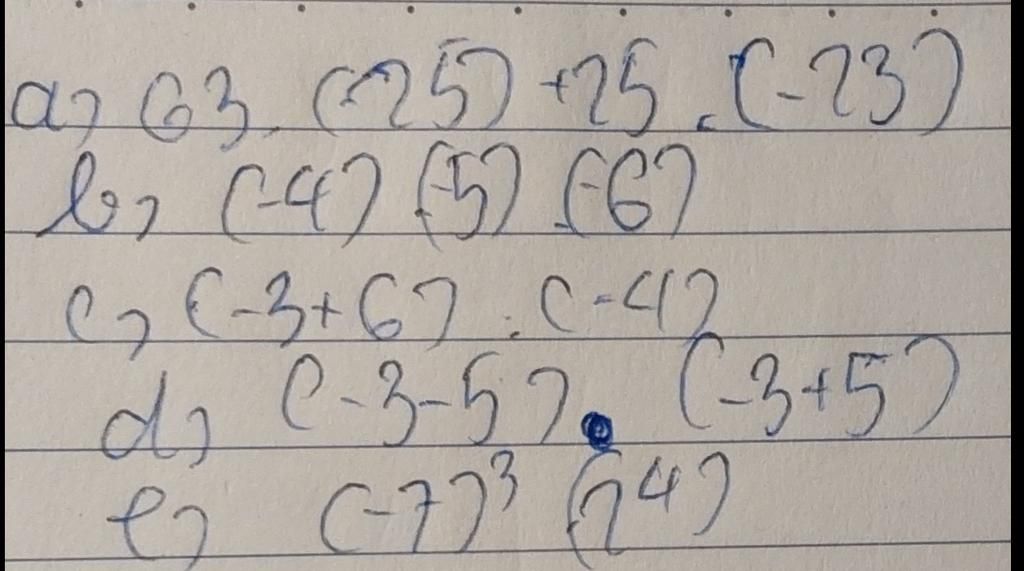 a) 63. (-25) +25 . (-23)
b) (-4) (-5) . (-6)
c) (-3+6) . (-4)
d) (-3-5) . (-3+5)
e) (-7)³ (2⁴)